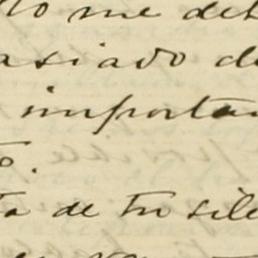 to me deb
asiado de
importan
o.
ta de tu sile